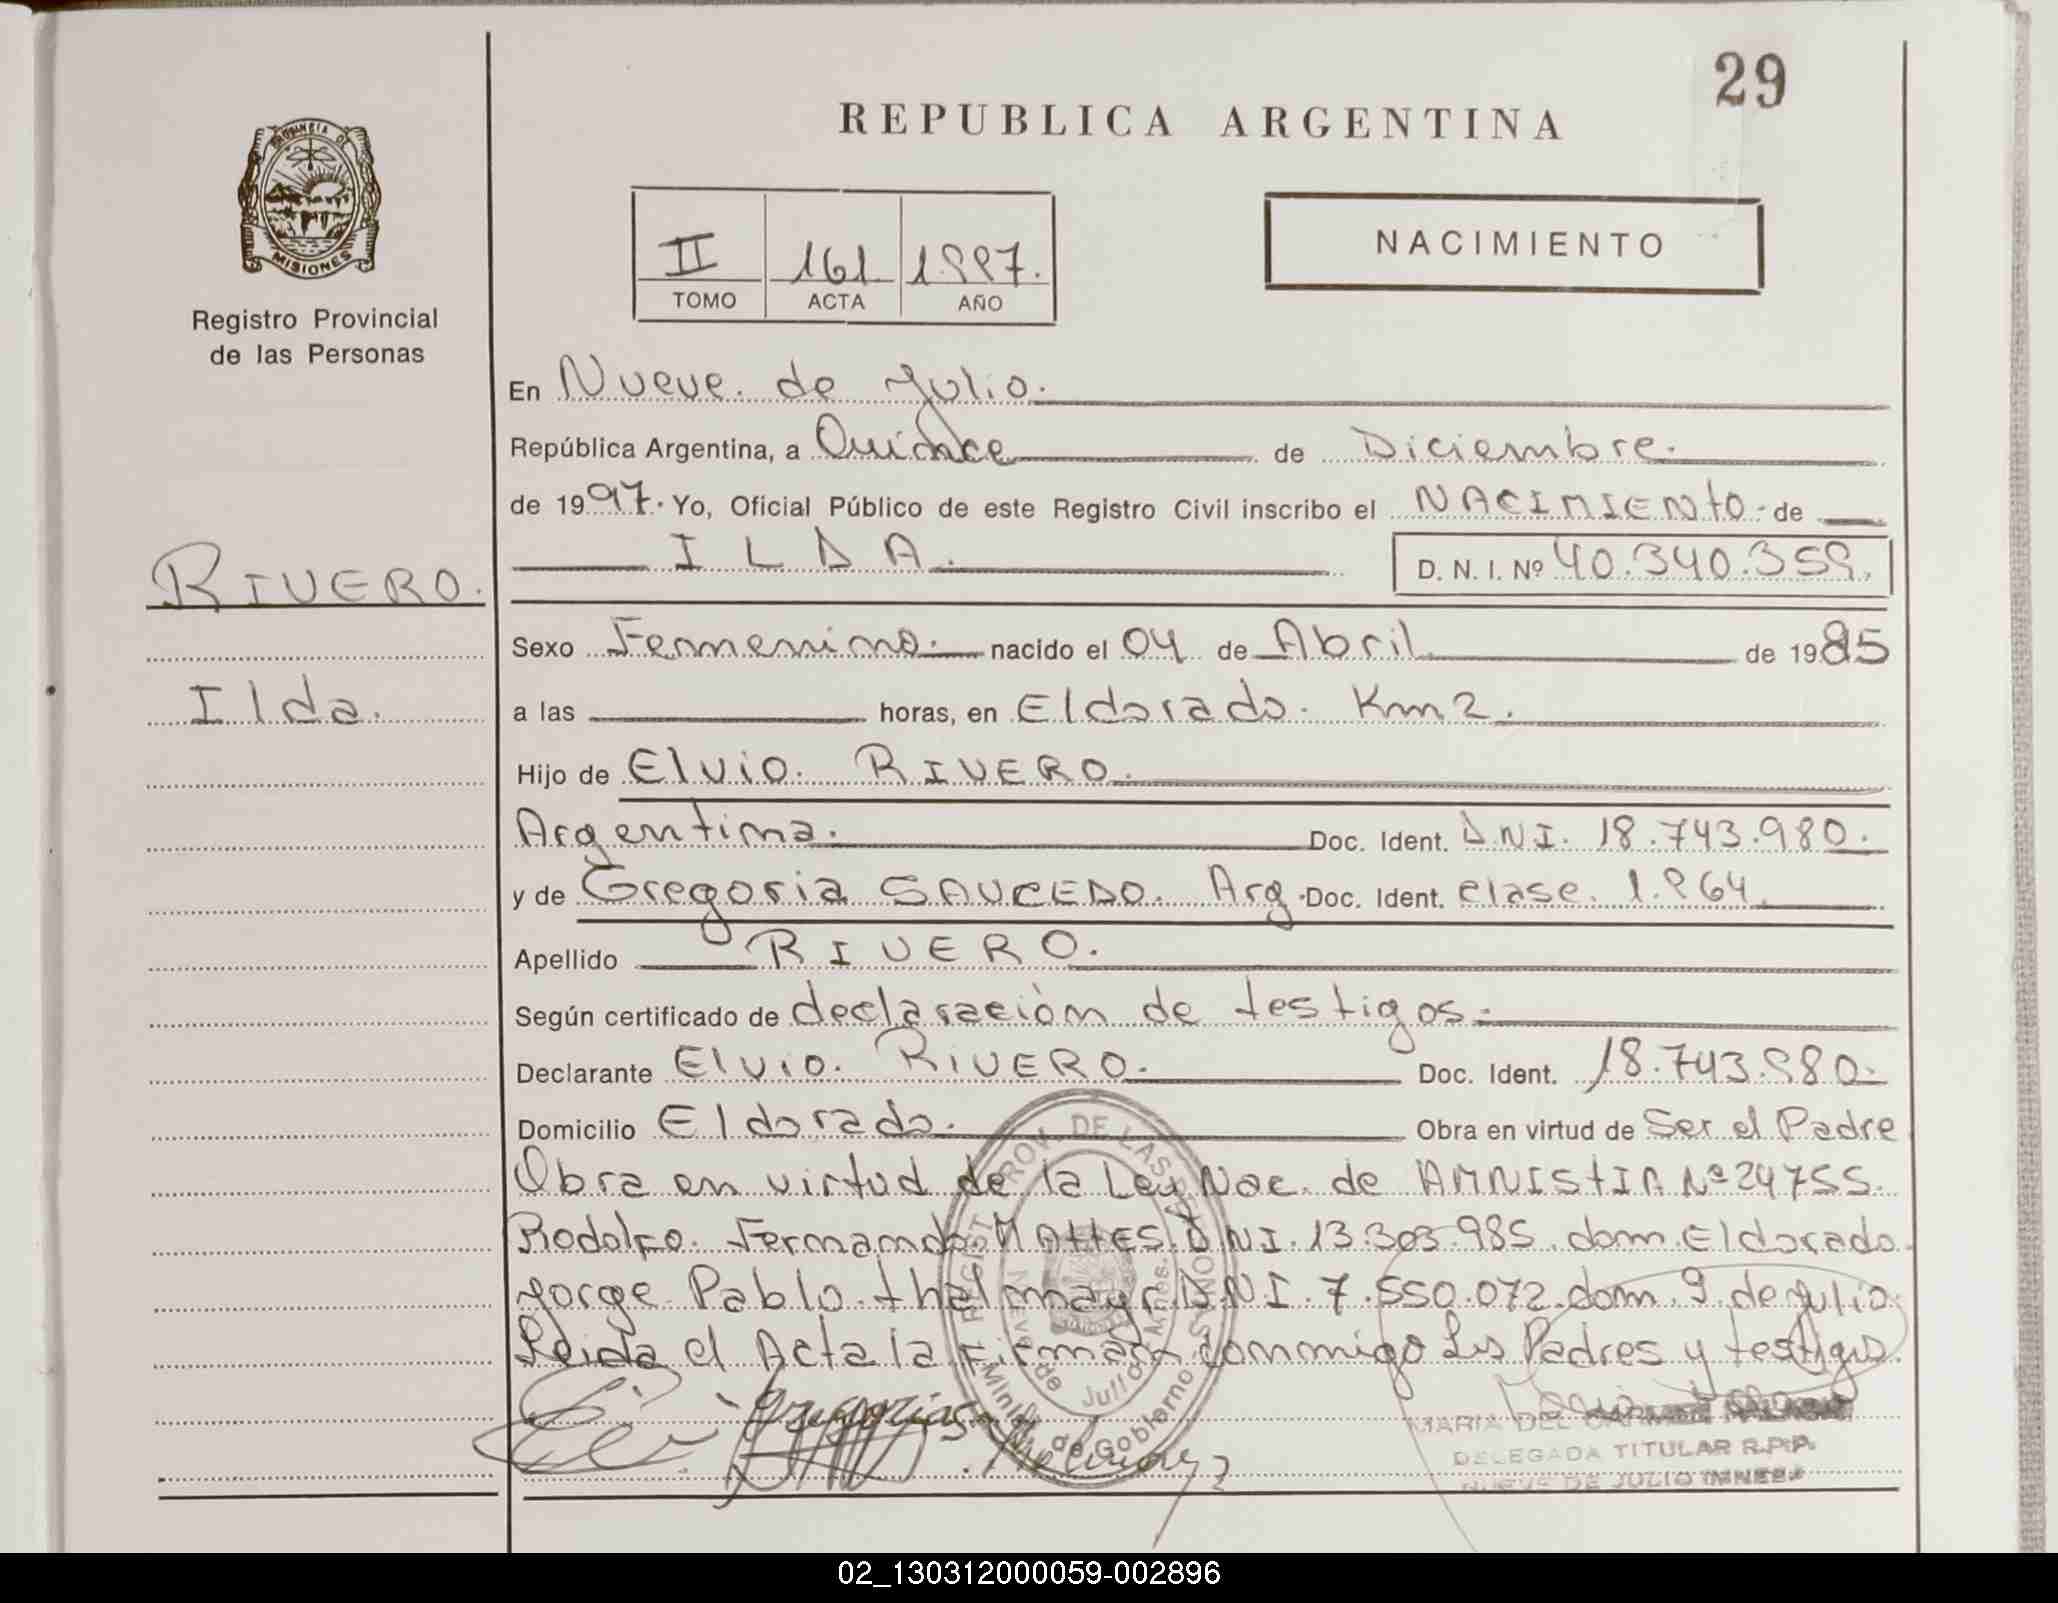 29
REPUBLICA ARGENTINA
PROVINCIA DE
MISIONES
Registro Provincial
de las Personas
II 161 1997.
TOMO ACTA AÑO
NACIMIENTO
En Nueve de Julio.
República Argentina, a Quince de Diciembre.
de 1997. Yo, Oficial Público de este Registro Civil inscribo el NACIMIENTO de
ILDA. D. N. I. Nº 40.340.359.
RIVERO.
Ilda.
Sexo Femenino. nacido el 04 de Abril de 1985
a las horas, en Eldorado. Km 2.
Hijo de Elvio. RIVERO.
Argentina. Doc. Ident. DNI. 18.743.980.
y de Gregoria SAUCEDO. Arg. Doc. Ident. clase. 1.964
Apellido RIVERO.
Según certificado de declaraciòn de testigos.
Declarante Elvio. RIVERO. Doc. Ident. 18.743.980.
Domicilio Eldorado. Obra en virtud de Ser el Padre
Obra en virtud de la Ley Nac. de AMNISTIA Nº 24755.
Rodolfo. Fernando. MATTES. DNI. 13.303.985. dom. Eldorado.
Jorge Pablo. thalmayr. DNI. 7.550.072. dom. 9. de Julio.
Leida el Acta la firman conmigo Los Padres y testigos.
REGIST. PROV. DE LAS PERSONAS
Nueve de Julio Mnes.
Minist. de Gobierno
Gregoria
MARIA DEL CARMEN
DELEGADA TITULAR R.P.P.
NUEVE DE JULIO (MNES.)
02_130312000059-002896